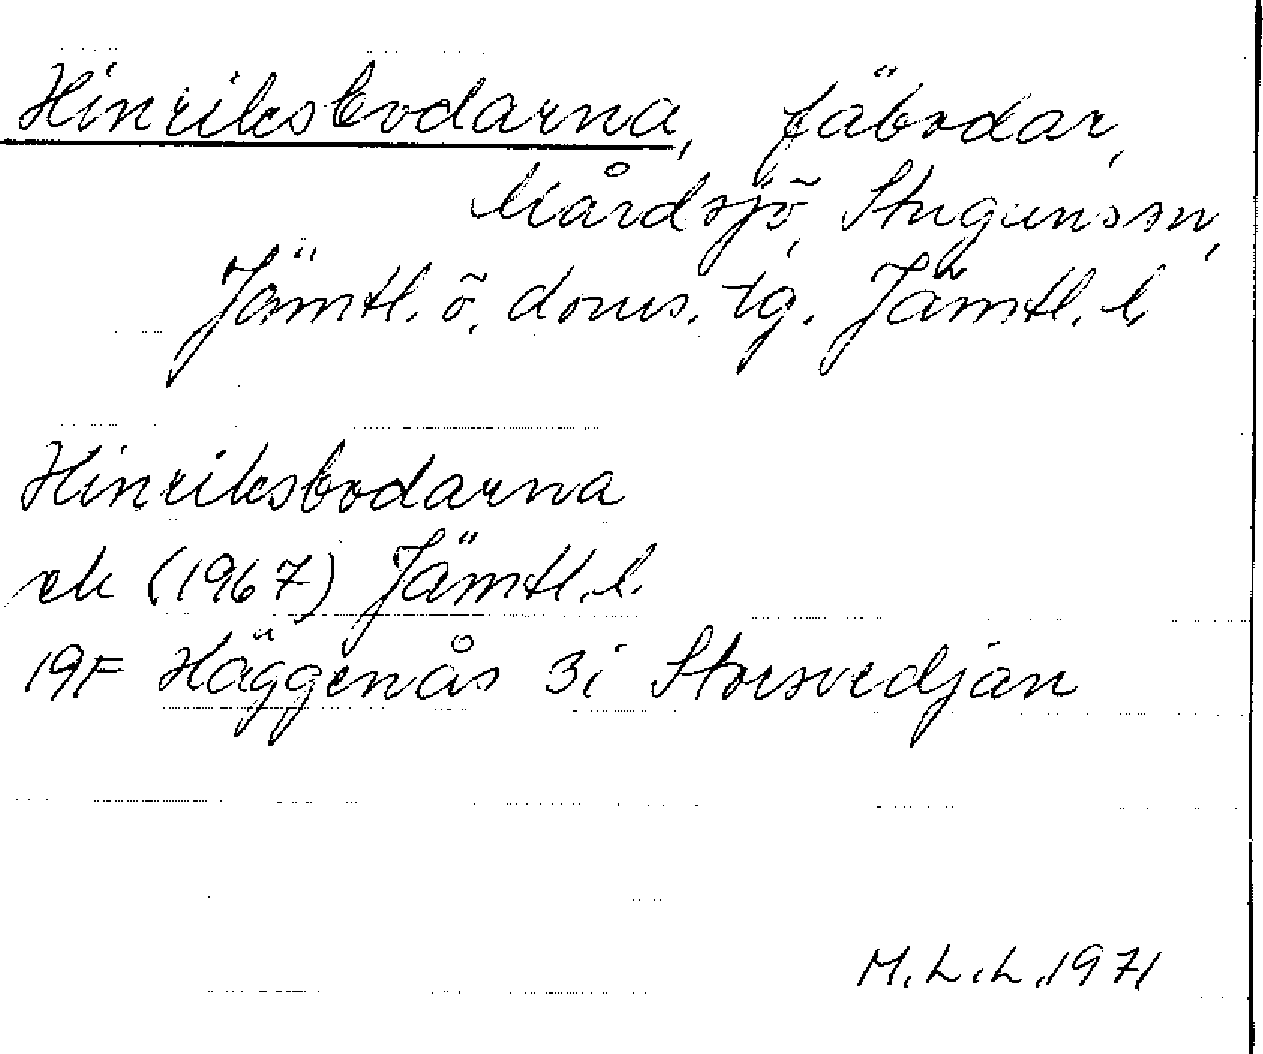 Hinriksbodarna, fäbodar,
Mårdsjö, Stuguns sn,
Jämtl. ö. doms. tg. Jämtl. l.
Hinriksbodarna
ek (1967) Jämtl. l.
19F Häggenås 3i Storsvedjan
M.L.L. 1971